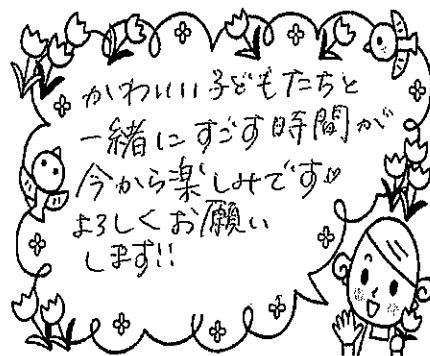 かわいい子どもたちと
一緒にすごす時間が
今から楽しみです♡
よろしくお願い
します!!